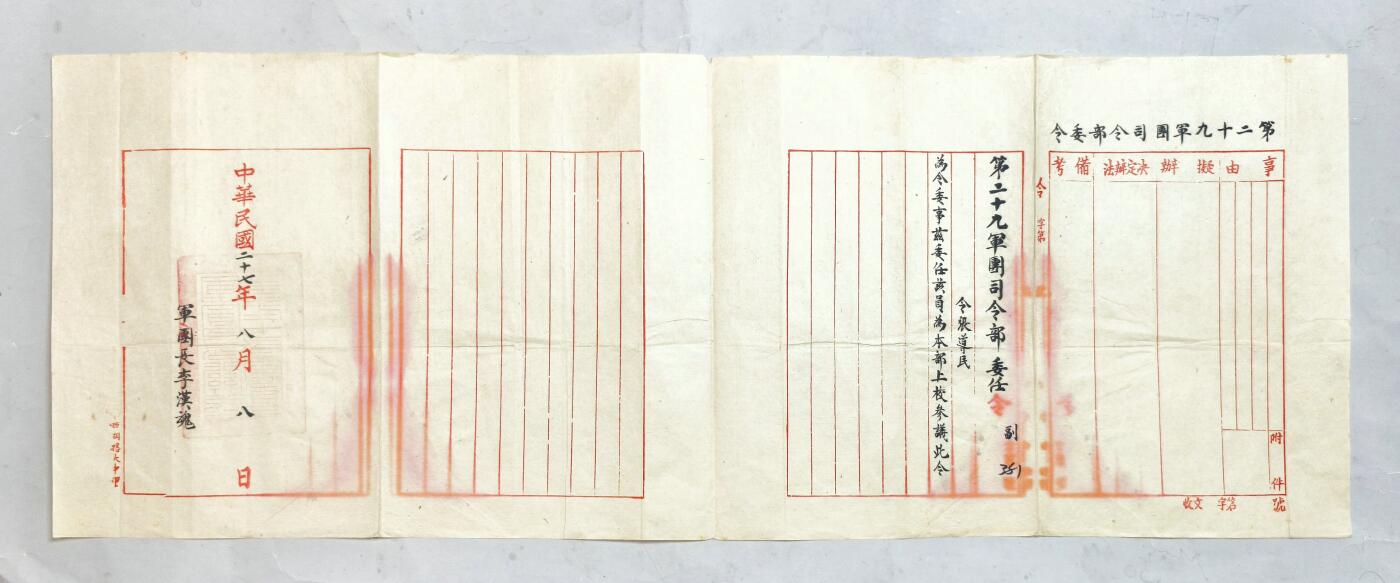 第二十九軍團司令部委令
事由
擬辦
決定辦法
備考
附件
收文 字第 號
令
字第
第二十九軍團司令部委任令
副 351
令張導民
為令委事茲委任該員為本部上校參議此令
中華民國二十七年八月八日
軍團長李漢魂